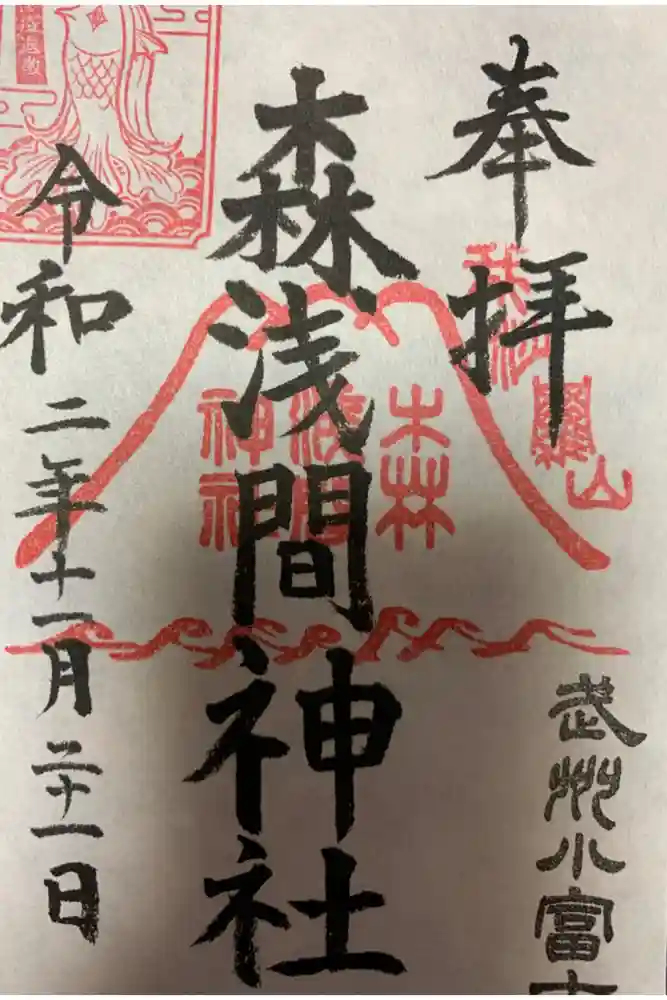 奉拝
武州小富士
森浅間神社
森
浅間
神社
令和二年十一月二十一日